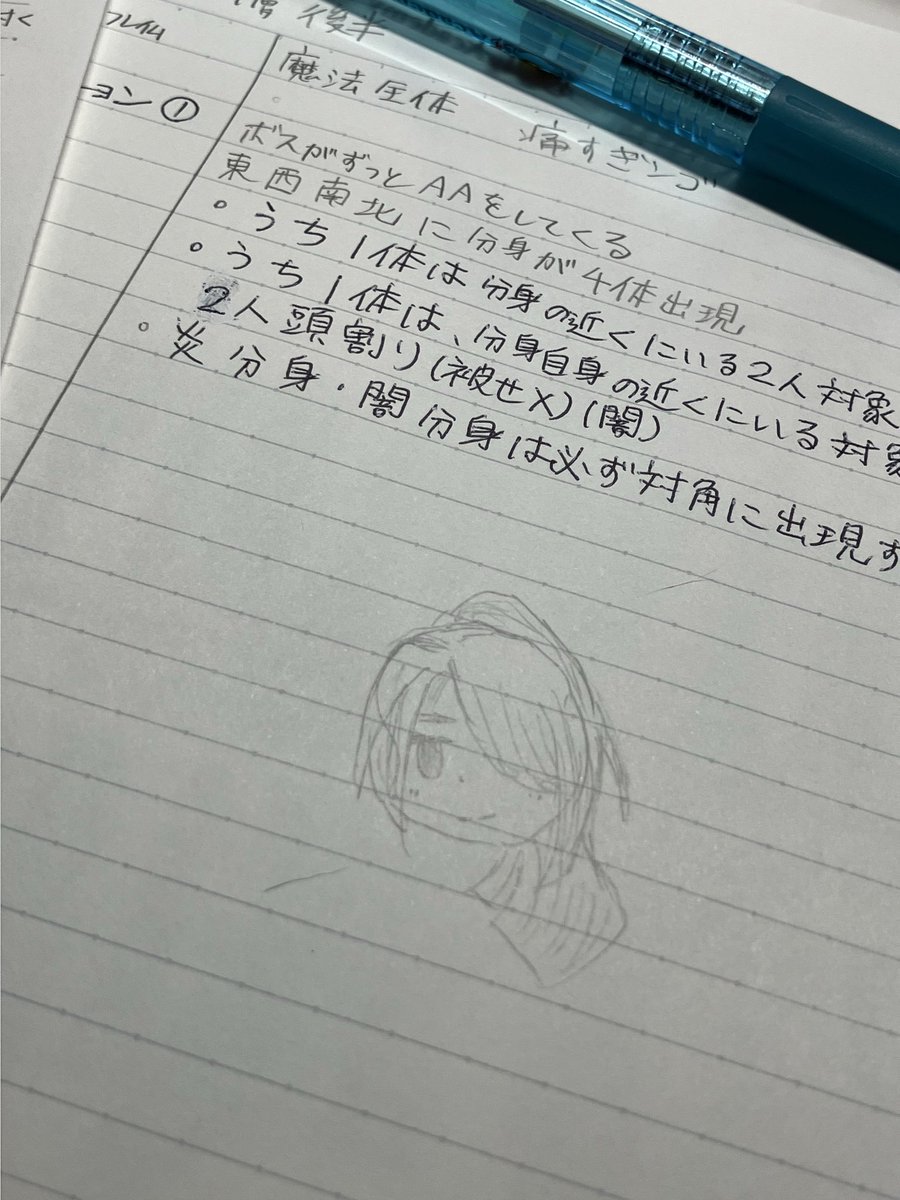 す く
フレイム
増 後半
ョン ①
魔法全体 痛すぎンゴ
ボスがずっとAAをしてくる
東西南北に分身が4体出現
○うち1体は分身の近くにいる2人対象
○うち1体は、分身自身の近くにいる対象
2人頭割り(被せX)(闇)
○炎分身・闇分身は必ず対角に出現す